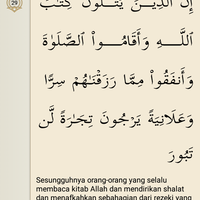 29
إِنَّ ٱلَّذِينَ يَتْلُونَ كِتَٰبَ
ٱللَّهِ وَأَقَامُوا۟ ٱلصَّلَوٰةَ
وَأَنفَقُوا۟ مِمَّا رَزَقْنَٰهُمْ سِرًّا
وَعَلَانِيَةً يَرْجُونَ تِجَٰرَةً لَّن
تَبُورَ
Sesungguhnya orang-orang yang selalu
membaca kitab Allah dan mendirikan shalat
dan menafkahkan sebahagian dari rezeki yang